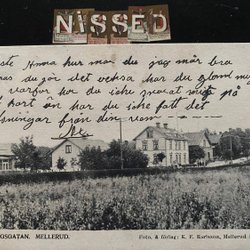 NISSED
ste Anna hur mår du jag mår bra
as du gör det också har du glömt mig
varför har du icke svarat mig på
kort än har du icke fått det
sningar från din vem
GSGATAN, MELLERUD.
Foto, & förlag: K. F. Karlsson, Mellerud